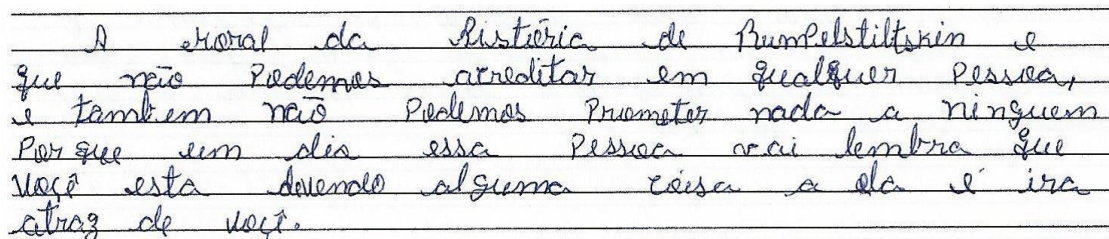 A moral da história de Rumpelstiltskin e
que não Podemos acreditar em qualquer Pessoa,
e tambem não Podemos Prometer nada a ninguem
Por que um dia essa Pessoa vai lembra que
voçê esta devendo alguma coisa a ela é ira
atraz de voçê.